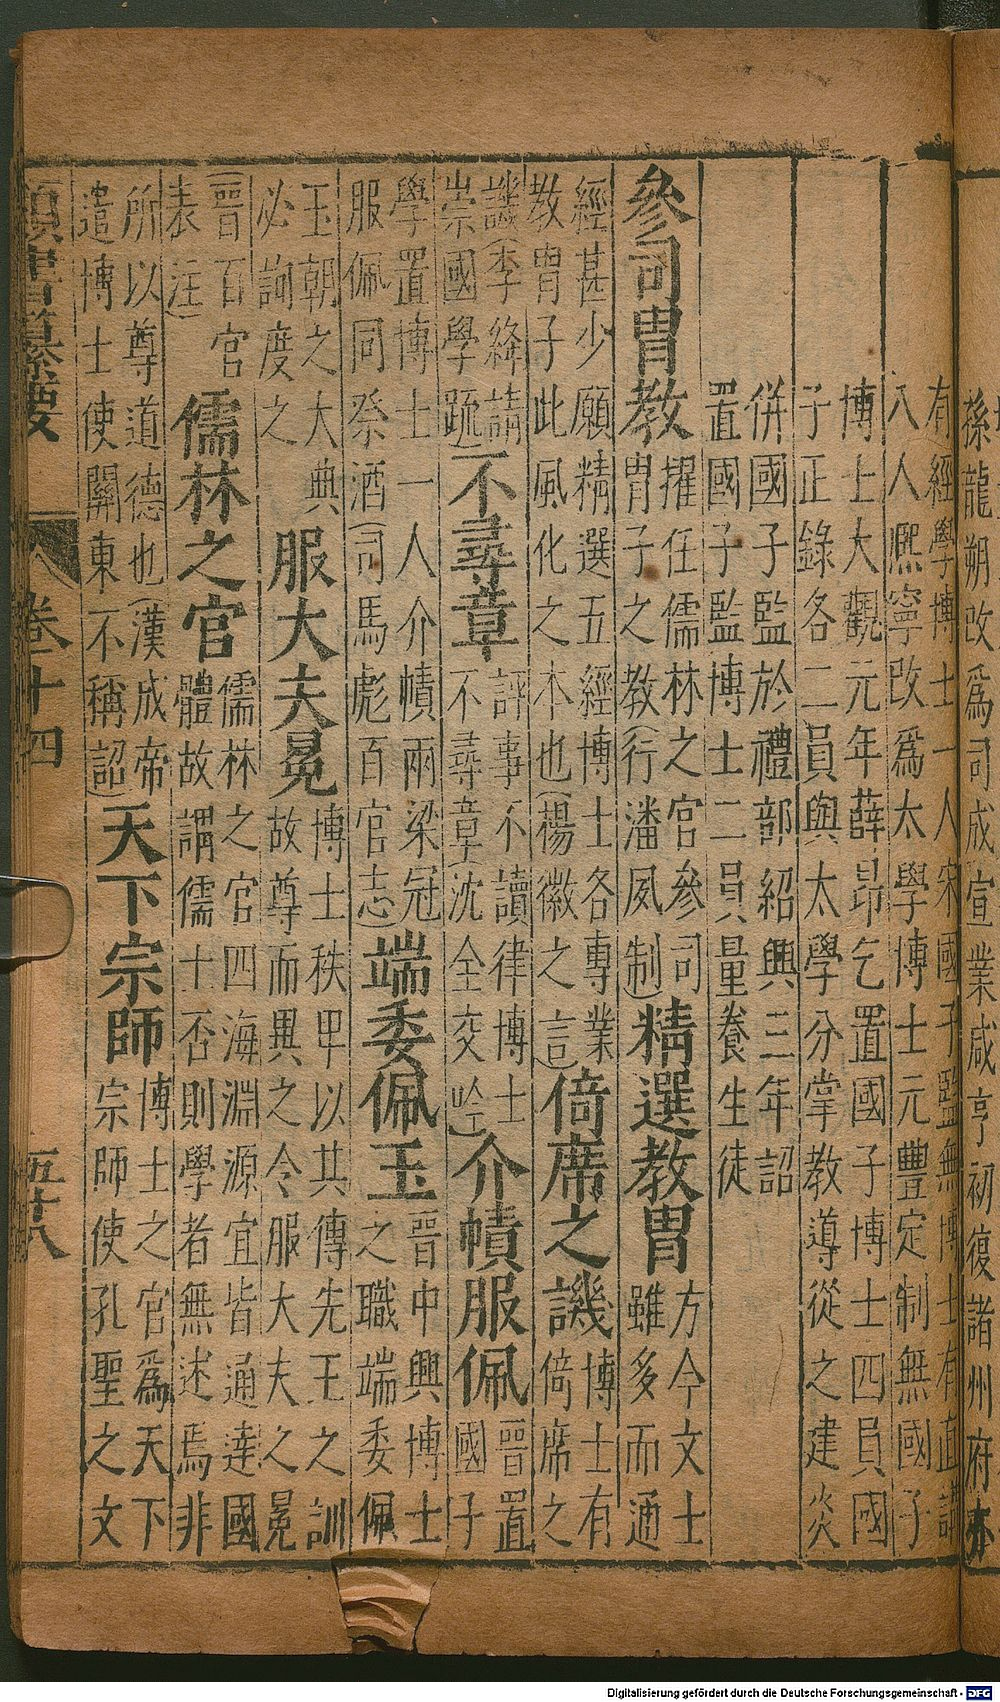 孫龍朔改爲司成宣業咸亨初復諸州府亦
有經學博士一人宋國子監無博士有直講
八人熈寧改爲太學博士元豐定制無國子
博士大觀元年薛昂乞置國子博士四員國
子正錄各二員與太學分掌教導從之建炎
併國子監於禮部紹興三年詔
置國子監博士二員量養生徒
參司胄教
擢任儒林之宮參司
胄子之教(行潘夙制)
精選教胄
方今文士
雖多而通
經甚少願精選五經博士各專業
教胄子此風化之本也(楊徽之言)
倚席之譏
博士有
倚席之
譏(李絳請
崇國學疏)
不尋章
評事不讀律博士
不尋章(沈全交吟)
介幘服佩
晉置
國子
學置博士一人介幘兩梁冠
服佩同祭酒(司馬彪百官志)
端委佩玉
晉中興博士
之職端委佩
玉朝之大典
必詢度之
服大夫冕
博士秩甲以其傳先王之訓
故尊而興之令服大夫之冕
(晉百官
表注)
儒林之官
儒林之官四海淵源宜皆通達國
體故謂儒士否則學者無述焉非
所以尊道德也(漢成帝
遣博士使關東不稱詔)
天下宗師
博士之官爲天下
宗師使孔聖之文
類書纂要
卷十四
五十八
Digitalisierung gefördert durch die Deutsche Forschungsgemeinschaft - DFG